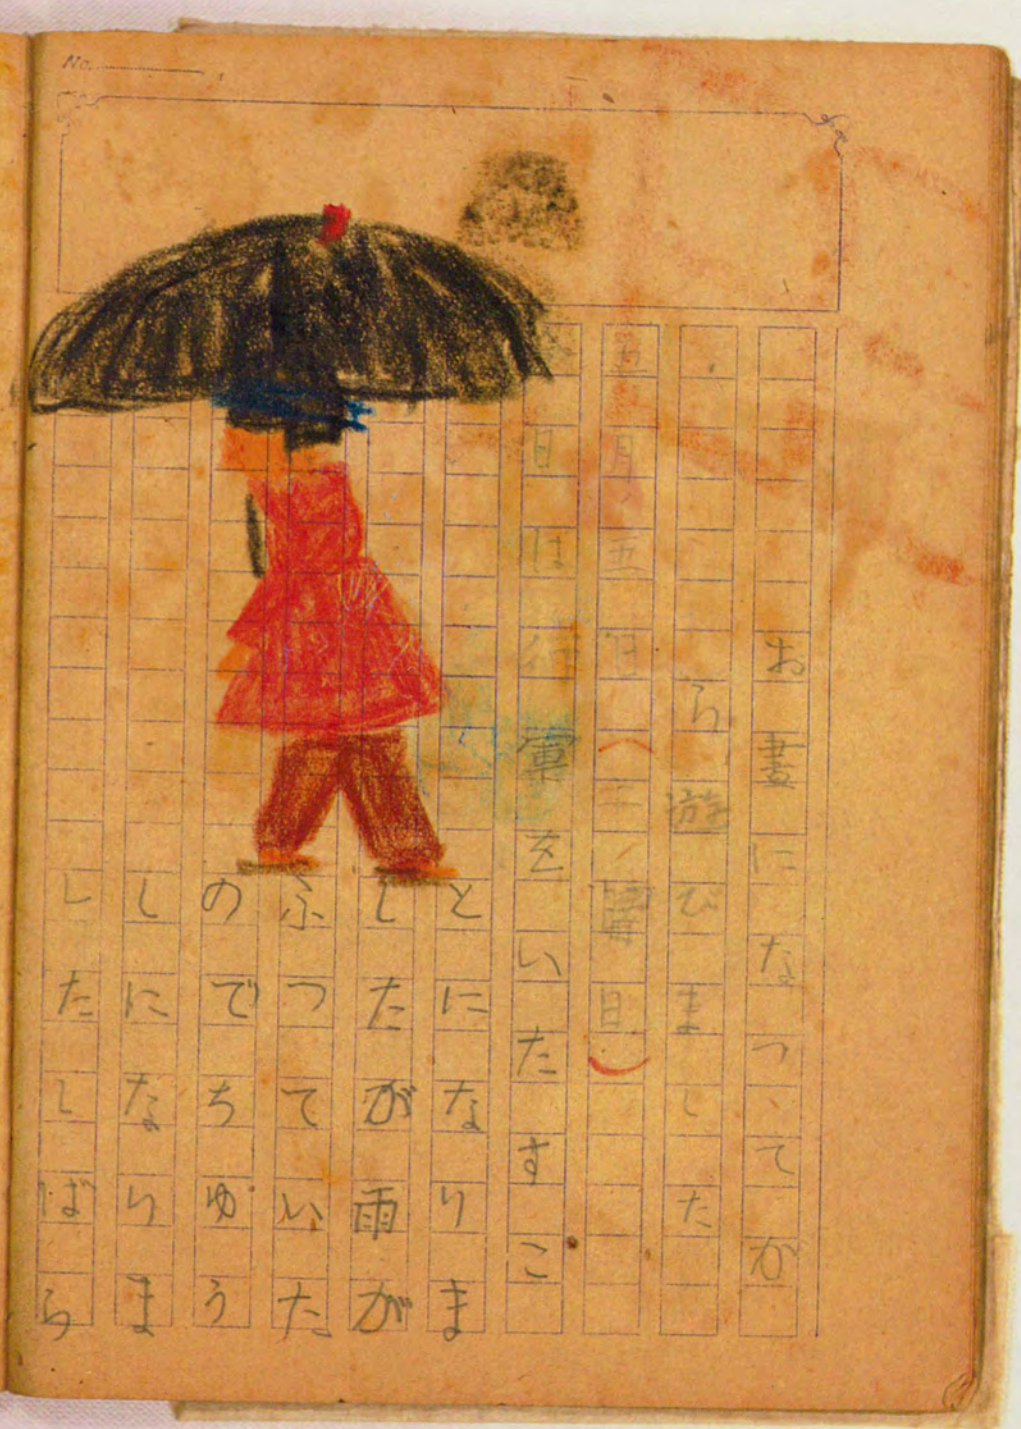 No.
お晝になつてか
ら遊びました
五月五日(曜日)
今日は行軍をいたすこ
とになりま
したが雨が
ふつていた
のでちゆう
しになりま
したしばら